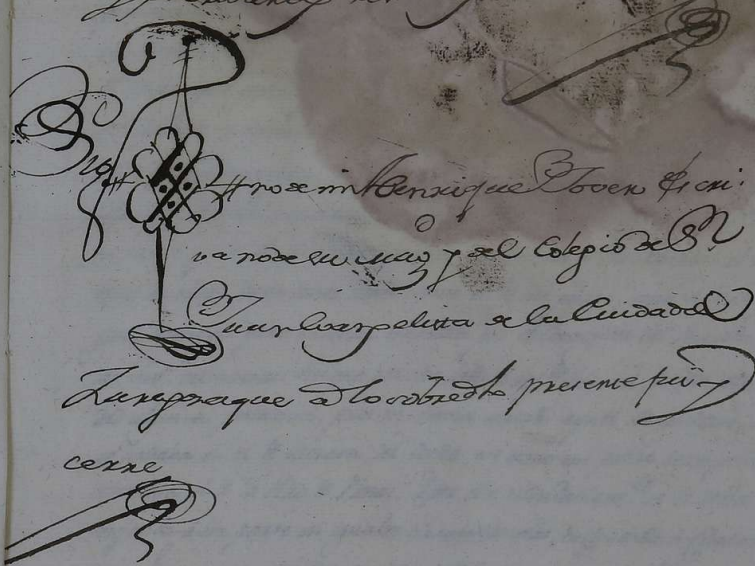 Sig#no de mi Henrique Joven Escri-
vano de su mag.d y del Colegio de S.n
Juan Evangelista de la Ciudad de
Zaragoza que a lo sobredho presente fui y
cerre